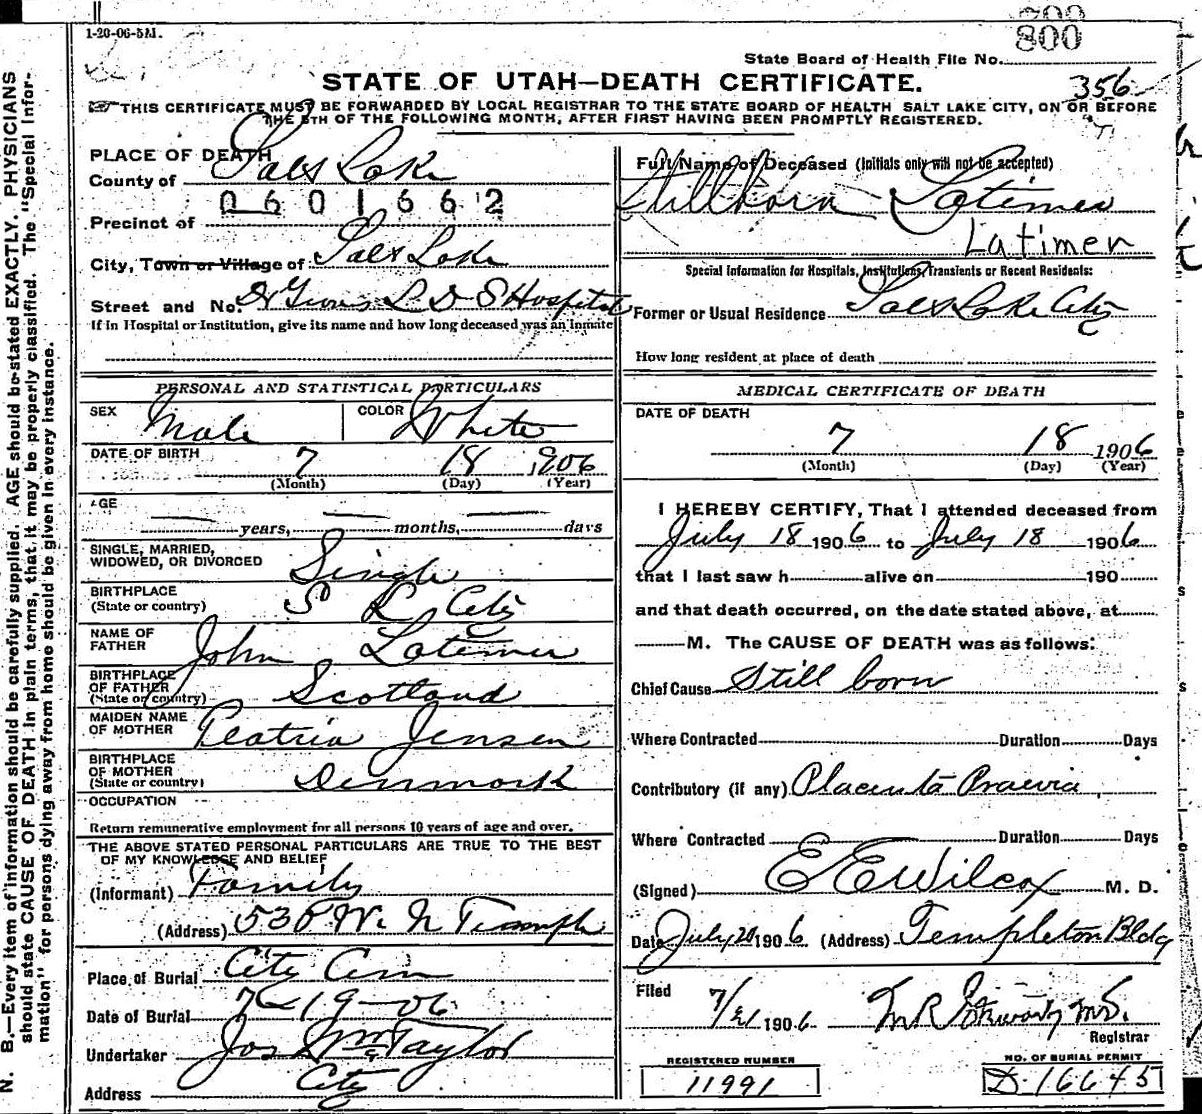 1-20-06-5M.
800
State Board of Health File No.
356
STATE OF UTAH—DEATH CERTIFICATE.
THIS CERTIFICATE MUST BE FORWARDED BY LOCAL REGISTRAR TO THE STATE BOARD OF HEALTH SALT LAKE CITY, ON OR BEFORE
THE 5TH OF THE FOLLOWING MONTH, AFTER FIRST HAVING BEEN PROMPTLY REGISTERED.
N. B.—Every item of information should be carefully supplied. AGE should be stated EXACTLY. PHYSICIANS
should state CAUSE OF DEATH in plain terms, that it may be properly classified. The "Special Infor-
mation" for persons dying away from home should be given in every instance.
PLACE OF DEATH
County of Salt Lake
0601662
Precinct of
City, Town or Village of Salt Lake
Street and No. L D S Hospital
If in Hospital or Institution, give its name and how long deceased was an inmate
PERSONAL AND STATISTICAL PARTICULARS
SEX Male COLOR White
DATE OF BIRTH 7 18 1906
(Month) (Day) (Year)
AGE
years, months, days
SINGLE, MARRIED,
WIDOWED, OR DIVORCED Single
BIRTHPLACE
(State or country) S L City
NAME OF
FATHER John Latimer
BIRTHPLACE
OF FATHER
(State or country) Scotland
MAIDEN NAME
OF MOTHER Jensen
BIRTHPLACE
OF MOTHER
(State or country) Denmark
OCCUPATION
Return remunerative employment for all persons 10 years of age and over.
THE ABOVE STATED PERSONAL PARTICULARS ARE TRUE TO THE BEST
OF MY KNOWLEDGE AND BELIEF
(Informant) Family
(Address) W. N Temple
Place of Burial City Cem
Date of Burial 7-19-06
Undertaker Jos Wm Taylor
Address City
Full Name of Deceased (Initials only will not be accepted)
Stillborn Latimer
Latimer
Special Information for Hospitals, Institutions, Transients or Recent Residents:
Former or Usual Residence Salt Lake City
How long resident at place of death
MEDICAL CERTIFICATE OF DEATH
DATE OF DEATH
7 18 1906
(Month) (Day) (Year)
I HEREBY CERTIFY, That I attended deceased from
July 18 1906 to July 18 1906
that I last saw h alive on 190
and that death occurred, on the date stated above, at
M. The CAUSE OF DEATH was as follows:
Chief Cause Still born
Where Contracted Duration Days
Contributory (if any) Placenta Praevia
Where Contracted Duration Days
(Signed) E E Wilcox M. D.
Date July 20 1906 (Address) Templeton Bldg
Filed 7/21 1906
Registrar
REGISTERED NUMBER
11991
NO. OF BURIAL PERMIT
D-16645